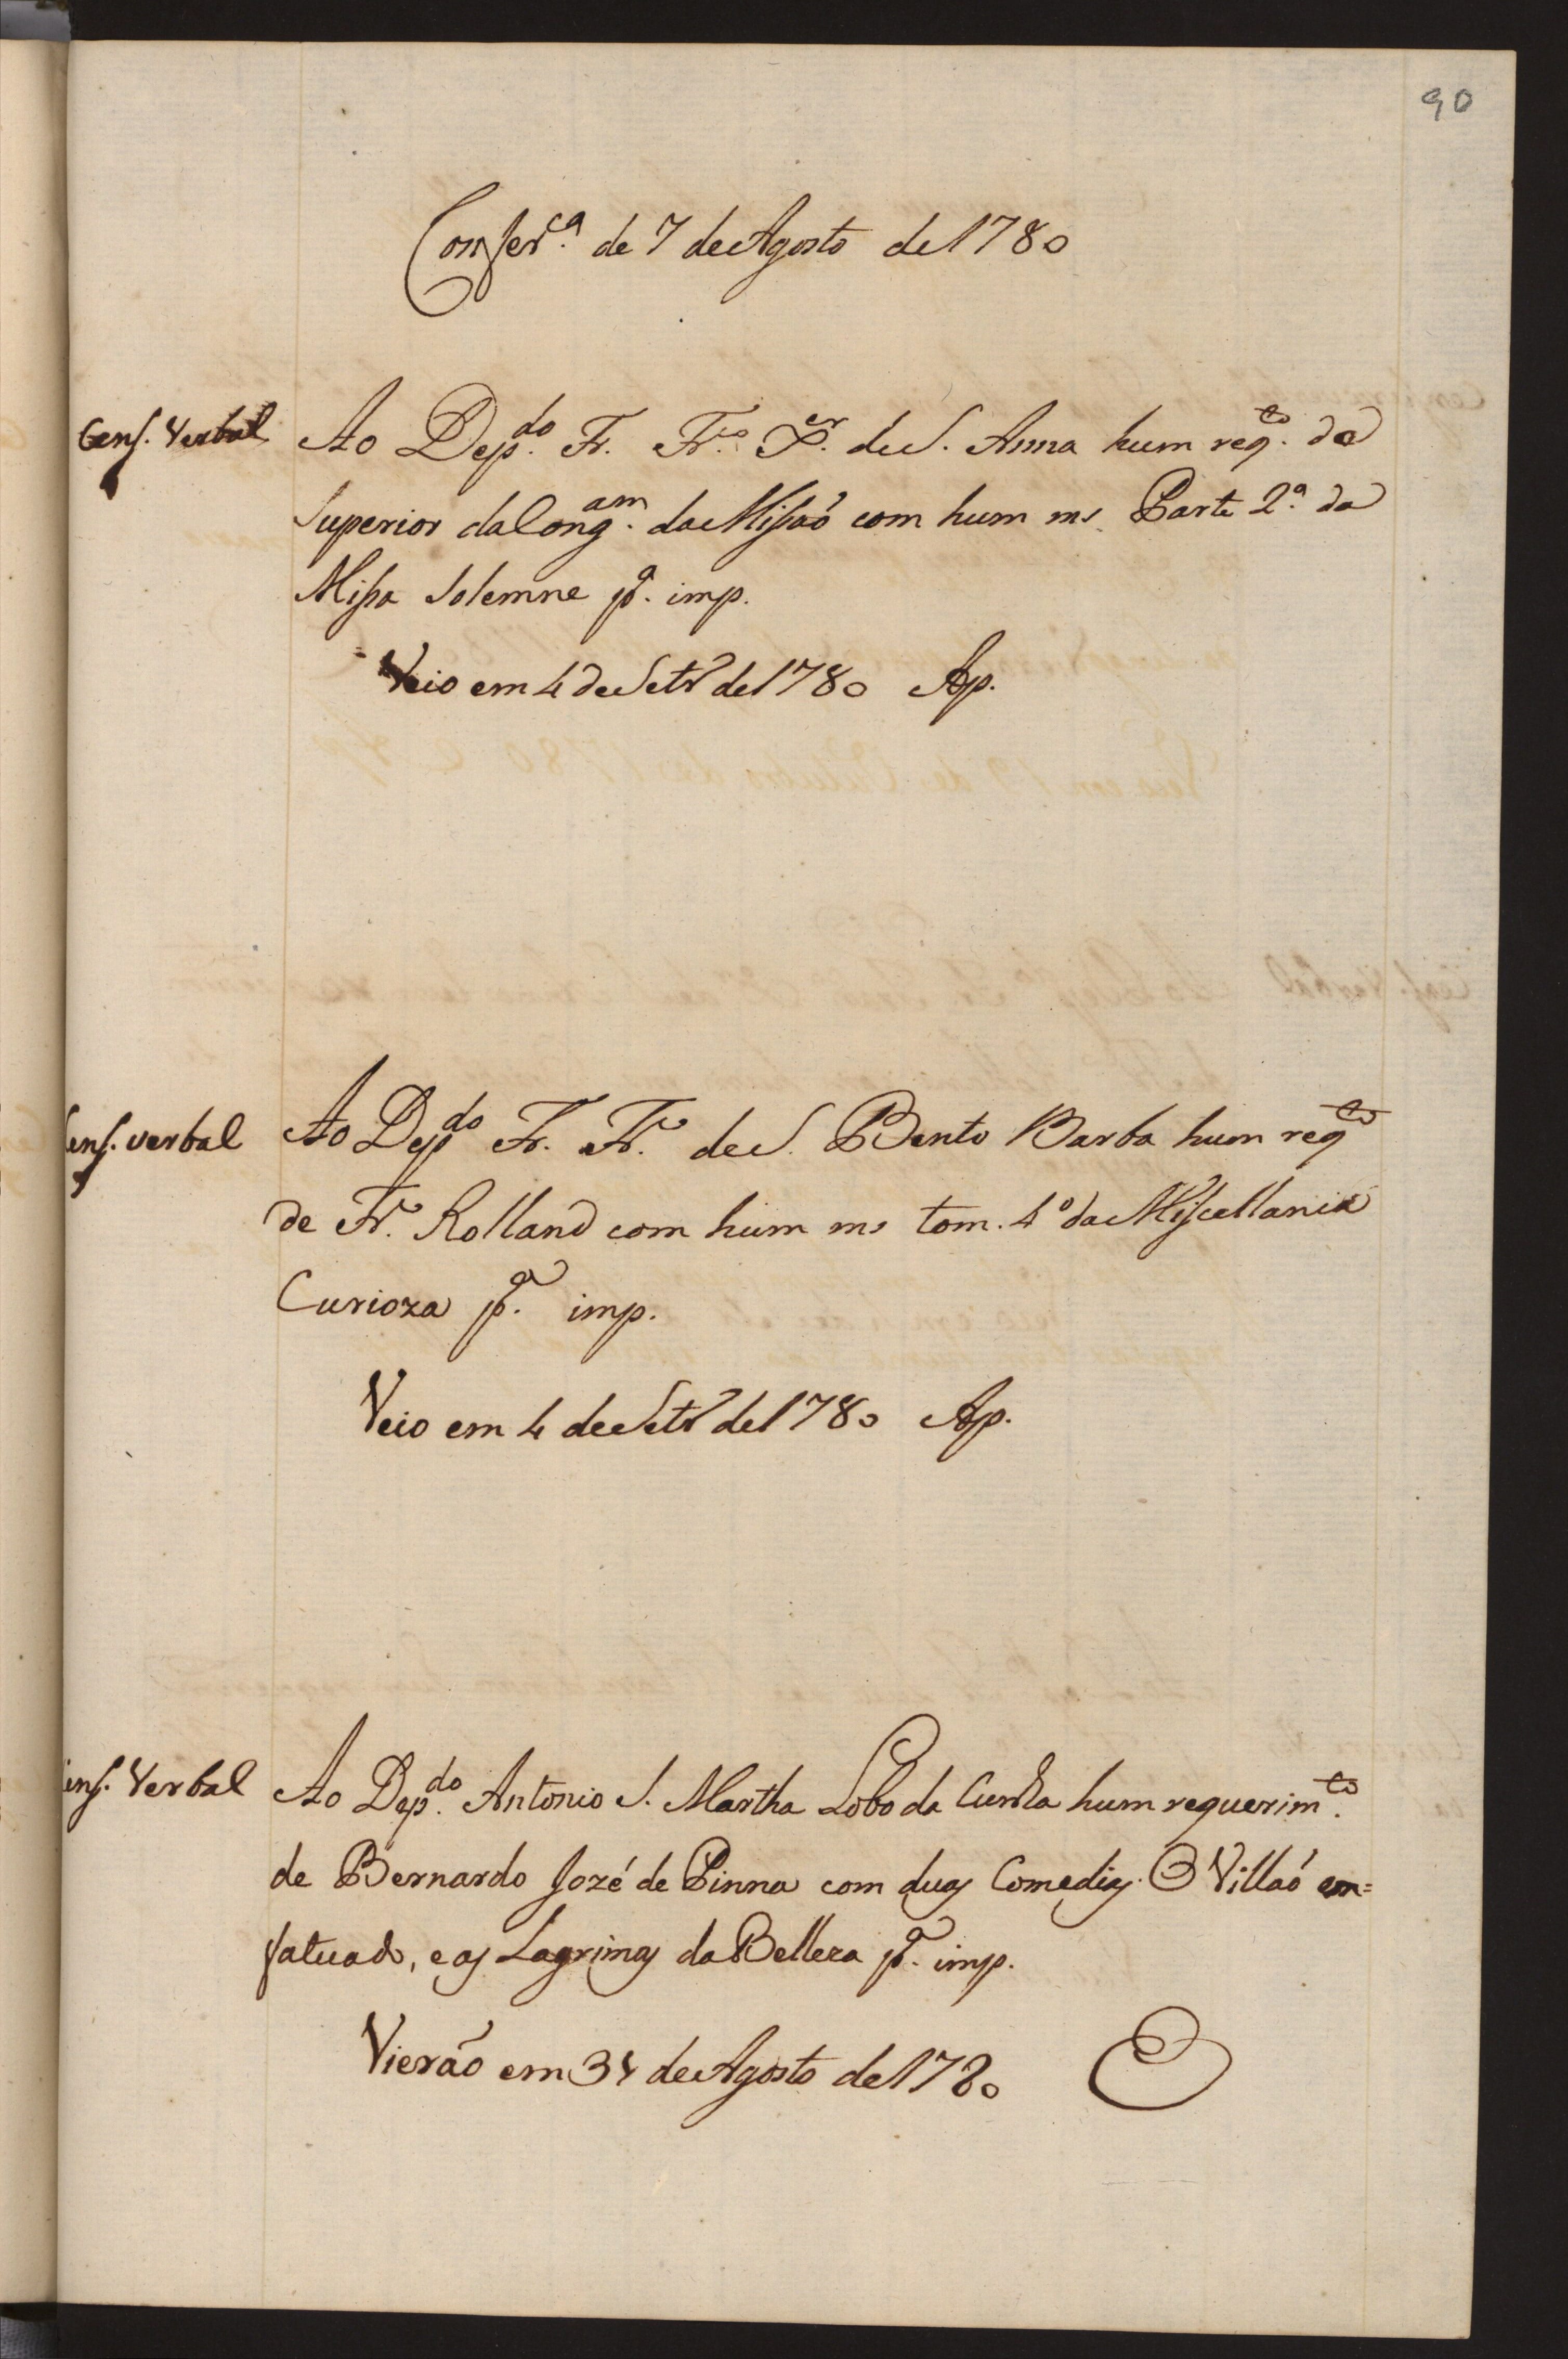 90
Confer.ca de 7 de Agosto de 1780
Cens. Verbal
Ao Dep.do Fr. Fr.co X.er de S. Anna hum req.to do
Superior da Cong.am da Missaõ com hum ms. Parte 2.a da
Missa Solemne p.a imp.
Veio em 4 de Setr de 1780 Ap.
Cens. verbal
Ao Depdo Fr. Fr.co de S. Bento Barba hum reqto
de Fr.co Rolland com hum ms tom. 4º da Miscellania
Curioza p.a imp.
Veio em 4 de Setr de 1780 Ap.
Cens. Verbal
Ao Dep.do Antonio S. Martha Lobo da Cunha hum requerim.to
de Bernardo José de Pinna com duas Comedias. O Villaõ en=
fatuado, e as Lagrimas da Belleza p.a imp.
Vieraõ em 31 de Agosto de 1780